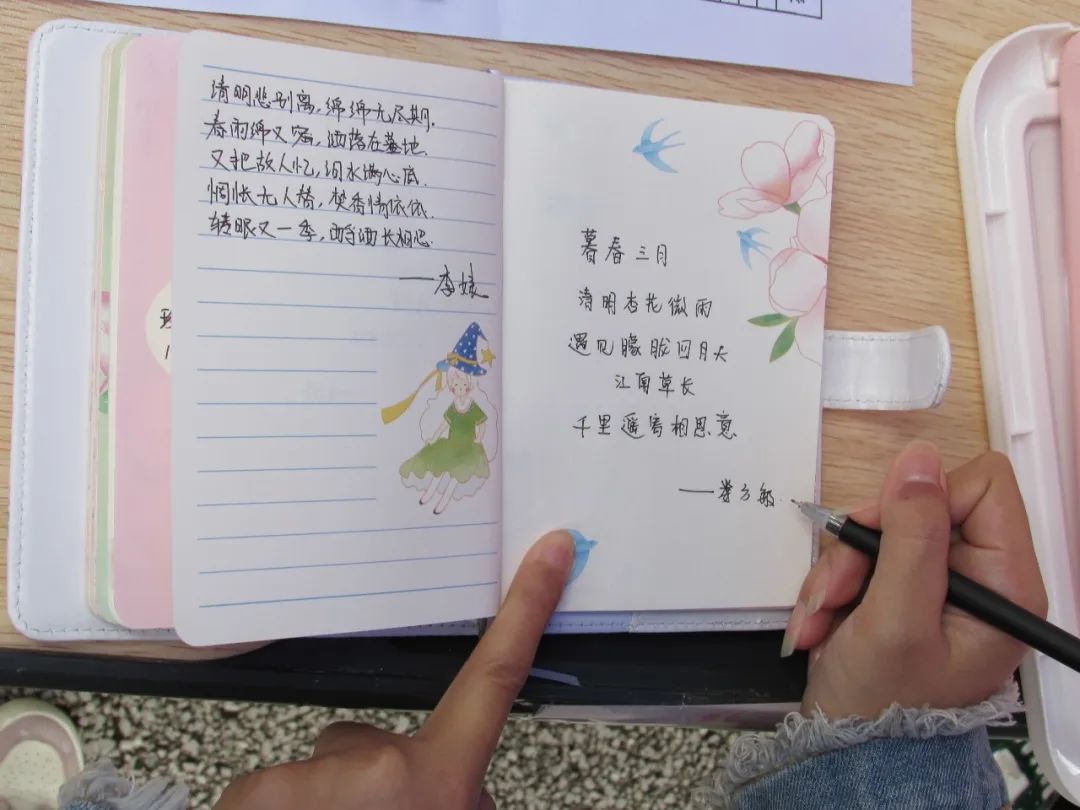 清明悲别离,绵绵无尽期.
春雨绵又密,洒落在墓地.
又把故人忆,泪水满心底.
惆怅无人替,焚香情依依.
转眼又一季,酉洒长相思.
——李
暮春三月
清明杏花微雨
遇见朦胧四月天
江南草长
千里遥寄相思意
——方敏.